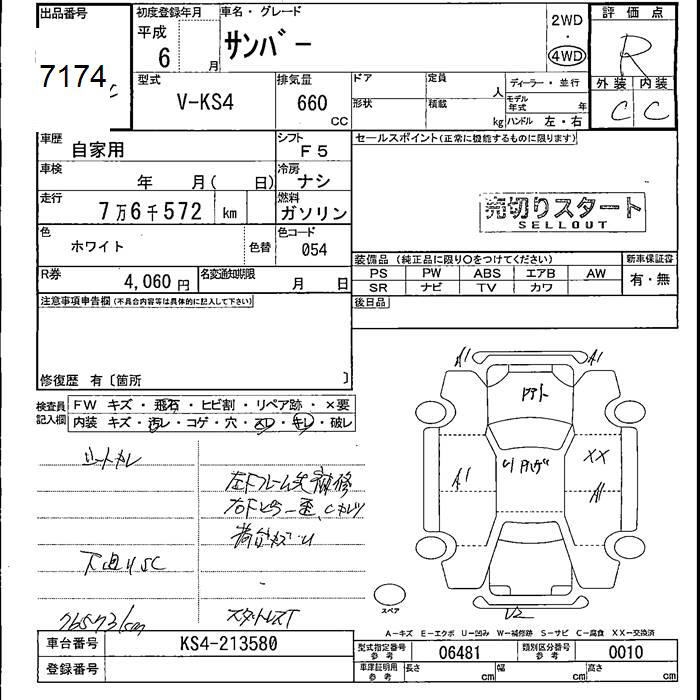 出品番号
7174
初度登録年月
平成
6 月
車名・グレード
サンバー
2WD
・
4WD
評価点
R
外装 内装
C C
型式
V-KS4
排気量
660 CC
ドア
定員 人
ディーラー・並行
形状
積載 kg
モデル年式 年
ハンドル 左・右
車歴
自家用
シフト
F5
車検
年 月( 日)
冷房
ナシ
走行
7万6千572 km
燃料
ガソリン
色
ホワイト
色替
色コード
054
R券
4,060 円
名変通知期限
月 日
セールスポイント(正常に機能するものに限ります)
売切りスタート
SELLOUT
装備品 (純正品に限り○をつけてください)
新車保証書
PS PW ABS エアB AW
SR ナビ TV カワ
有・無
後日品
注意事項申告欄(不具合内容等は具体的に記入して下さい)
修復歴 有〔箇所 〕
検査員記入欄
FW キズ・飛石・ヒビ割・リペア跡・×要
内装 キズ・汚レ・コゲ・穴・スレ・キレ・破レ
A1 A1
A1
XX
A1
U2
シートカレ
下廻りSC
76573km
スタットレスT
スペア
A-キズ E-エクボ U-凹み W-補修跡 S-サビ C-腐食 XX-交換済
車台番号
KS4-213580
登録番号
型式指定番号 参考
06481
類別区分番号 参考
0010
車庫証明用 参考
長さ cm
幅 cm
高さ cm